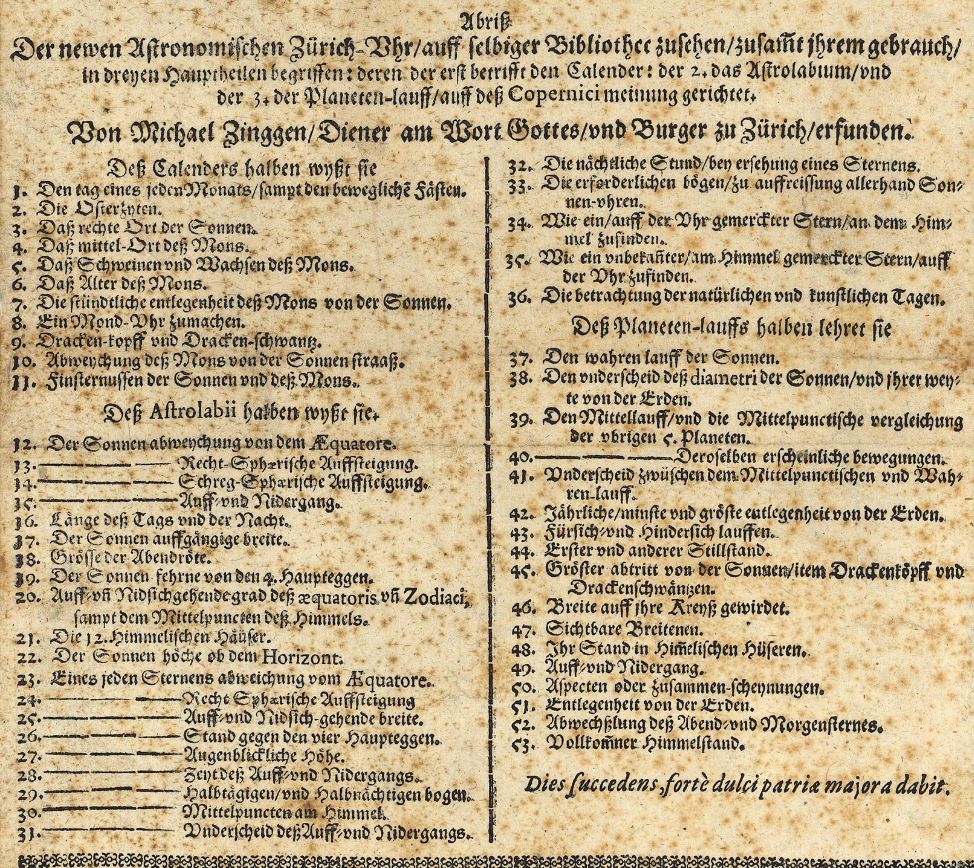 Abriß
Der newen Astronomischen Zürich-Vhr/auff selbiger Bibliothec zusehen/zusam̃t jhrem gebrauch/
in dreyen Hauptheilen begriffen: deren der erst betrifft den Calender: der 2. das Astrolabium/vnd
der 3. der Planeten-lauff/auff deß Copernici meinung gerichtet.
Von Michael Zinggen/Diener am Wort Gottes/vnd Burger zu Zürich/erfunden.
Deß Calenders halben wyßt sie
1. Den tag eines jeden Monats/sampt den beweglichẽ Fästen.
2. Die Osterzyten.
3. Daß rechte Ort der Sonnen.
4. Daß mittel-Ort deß Mons.
5. Daß Schweinen vnd Wachsen deß Mons.
6. Daß Alter deß Mons.
7. Die stündtliche entlegenheit deß Mons von der Sonnen.
8. Ein Mond-Vhr zumachen.
9. Dracken-kopff vnd Dracken-schwantz.
10. Abweychung deß Mons von der Sonnen straaß.
11. Finsternussen der Sonnen vnd deß Mons.
Deß Astrolabii halben wyßt sie.
12. Der Sonnen abweychung von dem Æquatore.
13. ——— Recht-Sphærische Auffsteigung.
14. ——— Schreg-Sphærische Auffsteigung.
15. ——— Auff-vnd Nidergang.
16. Länge deß Tags vnd der Nacht.
17. Der Sonnen auffgängige breite.
18. Grösse der Abendröte.
19. Der Sonnen fehrne von den 4. Haupteggen.
20. Auff-vñ Nidsichgehende grad deß æquatoris vñ Zodiaci,
sampt dem Mittelpuncten deß Himmels.
21. Die 12. Himmelischen Häuser.
22. Der Sonnen höche ob dem Horizont.
23. Eines jeden Sternens abweichung vom Æquatore.
24. ——— Recht Sphærische Auffsteigung
25. ——— Auff-vnd Nidsich-gehende breite.
26. ——— Stand gegen den vier Haupteggen.
27. ——— Augenblickliche Höhe.
28. ——— Zeyt deß Auff-vnd Nidergangs.
29. ——— Halbtägigen/vnd Halbnächtigen bogen.
30. ——— Mittelpuncten am Himmel.
31. ——— Vnderscheid deß Auff-vnd Nidergangs.
32. Die nächtliche Stund/bey ersehung eines Sternens.
33. Die erforderlichen bögen/zu auffreissung allerhand Son-
nen-vhren.
34. Wie ein/auff der Vhr gemerckter Stern/an dem Him-
mel zufinden.
35. Wie ein vnbekañter/am Himmel gemerckter Stern/auff
der Vhr zufinden.
36. Die betrachtung der natürlichen vnd kunstlichen Tagen.
Deß Planeten-lauffs halben lehret sie
37. Den wahren lauff der Sonnen.
38. Den vnderscheid deß diametri der Sonnen/vnd jhrer wey-
te von der Erden.
39. Den Mittellauff/vnd die Mittelpunctische vergleichung
der vbrigen 5. Planeten.
40. ——— Deroselben erscheinliche bewegungen.
41. Vnderscheid zwüschen dem Mittelpunctischen vnd Wah-
ren-lauff.
42. Jährliche/minste vnd gröste entlegenheit von der Erden.
43. Fürsich-vnd Hindersich lauffen.
44. Erster vnd anderer Stillstand.
45. Gröster abtritt von der Sonnen/item Drackenköpff vnd
Drackenschwäntzen.
46. Breite auff jhre Kreyß gewirdet.
47. Sichtbare Breitenen.
48. Ihr Stand in Him̃elischen Hüseren.
49. Auff-vnd Nidergang.
50. Aspecten oder zusammen-scheynungen.
51. Entlegenheit von der Erden.
52. Abwechßlung deß Abend-vnd Morgensternes.
53. Vollkom̃ner Himmelstand.
Dies succedens, fortè dulci patriæ majora dabit.